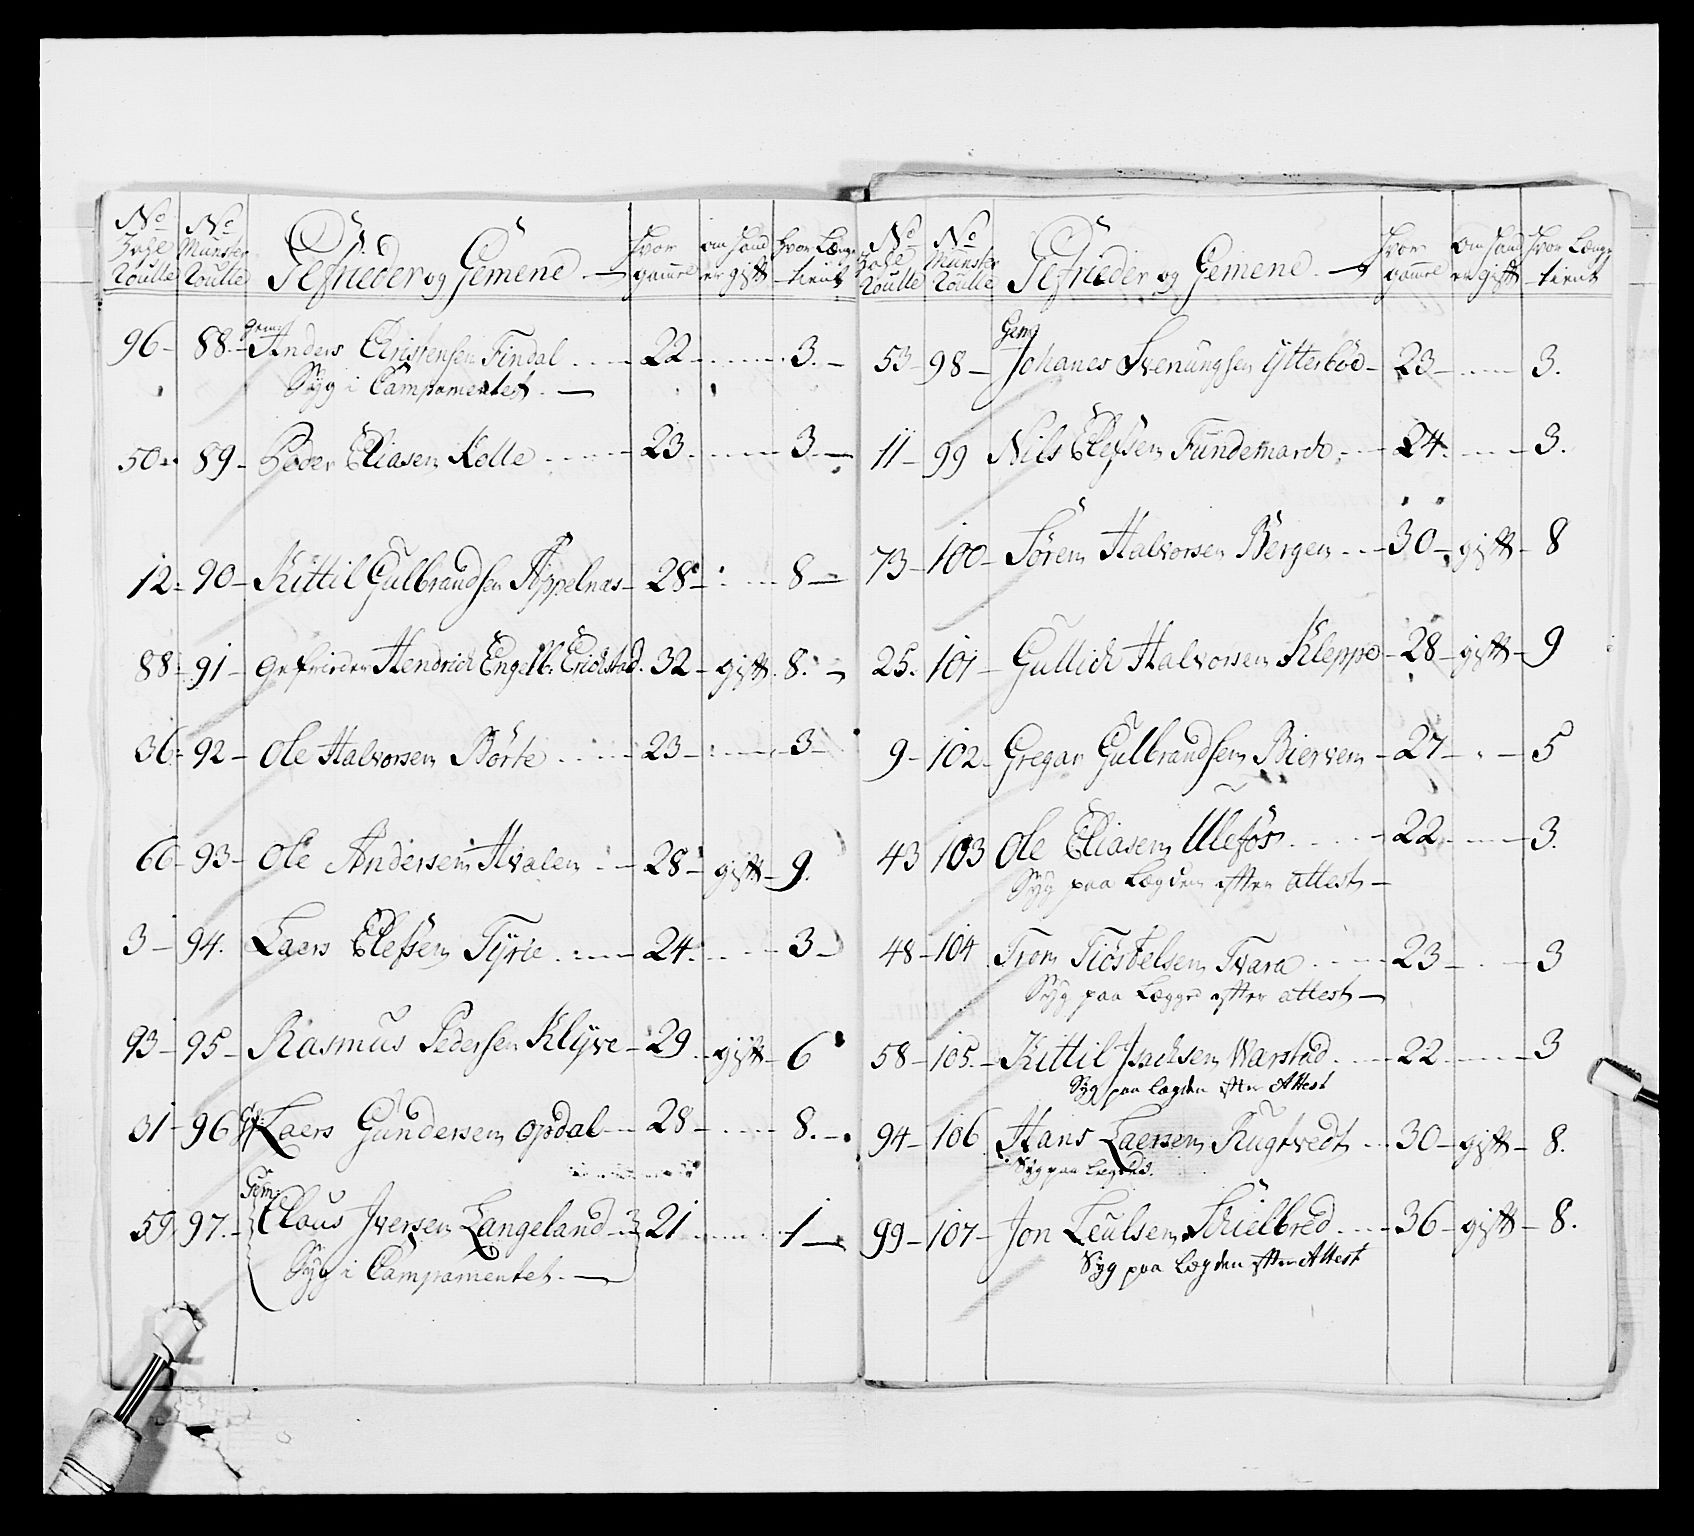 No No Hvor om hand Hvor Længe
Munster
Roulle Roulle Gefrieder og Gemene. gammel er gift tient
96 - 88 - Gem Anders Christensen Findal 22 3.
Syg i Campamentet.
50 89 - Peder Eliasen Kolle 23 3.
12 - 90 - Kittil Gulbrandsen Appelnæs 28 8
88 - 91 - Gefrieder Hendrich Engelb. Erichstad 32 - gift 8.
36 - 92 - Ole Halvorsen Börte 23 3
66 - 93 - Ole Andersen Hvalen 28 gift - 9.
3 - 94. Laers Elefsen Tÿrie 24 3
93 - 95 - Rasmus Pedersen Klÿve - 29 gift - 6
31 - 96 Gf. Laers Gundersen Opdal 28 8.
Gem:
59 97. - Claus Iversen Langeland 21 1
Syg i Campamentet.
No No Hvor om hand Hvor Længe
Munster
Roulle Roulle Gefrieder og Gemene. gammel er gift tient
Gem
53 - 98 - Johanes Svenungsen Ytterböe - 23 3.
11 - 99 Nils Elefsen Fundemarch 24. 3.
73 - 100 - Sören Halvorsen Bergen 30 - gift - 8
25. 101 - Gullich Halvorsen Kleppe - 28 - gift - 9
9 - 102 - Gregar Gulbrandsen Bierven - 27 - 5
43 103 Ole Eliasen Ulefos 22 3.
Syg paa Lægden efter attest -
48 - 104 Tron Tiöstelsen Tvara 23 3
Syg paa Lægge efter attest -
58 - 105. - Kittil Isachsen Warstad 22 3
Syg paa lægden efter Attest
94 - 106 Hans Laersen Rugtvedt 30 - gift - 8.
Syg paa Lægden.
99 - 107 - Jon Leulsen Skielbred 36 - gift - 8.
Syg paa Lægden efter Attest